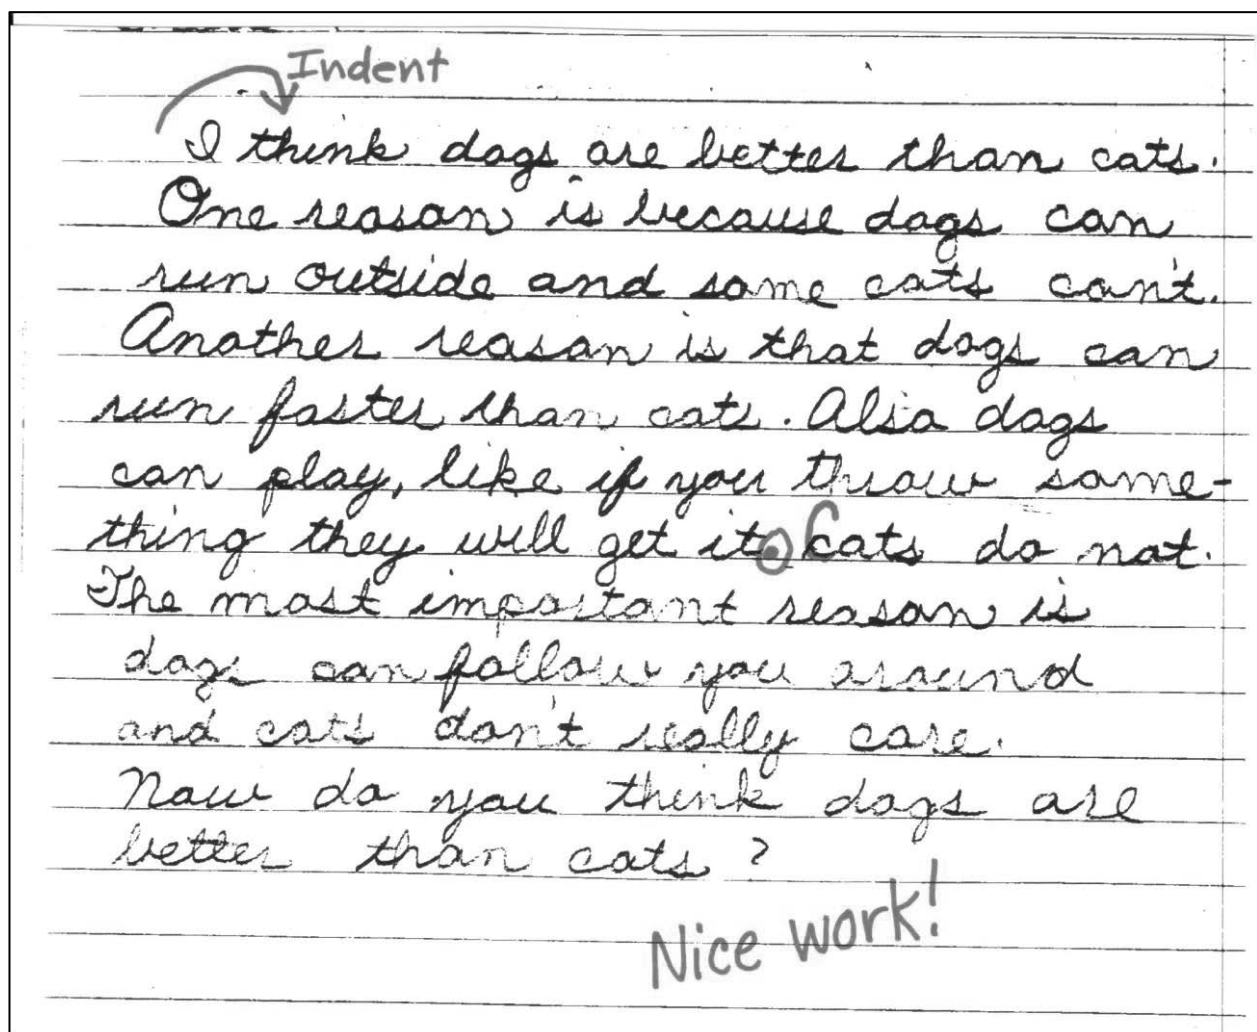 Indent
I think dogs are better than cats.
One reason is because dogs can
run outside and some cats can't.
Another reason is that dogs can
run faster than cats. Also dogs
can play, like if you throw some-
thing they will get it. Cats do not.
The most important reason is
dogs can follow you around
and cats don't really care.
Now do you think dogs are
better than cats?
Nice work!